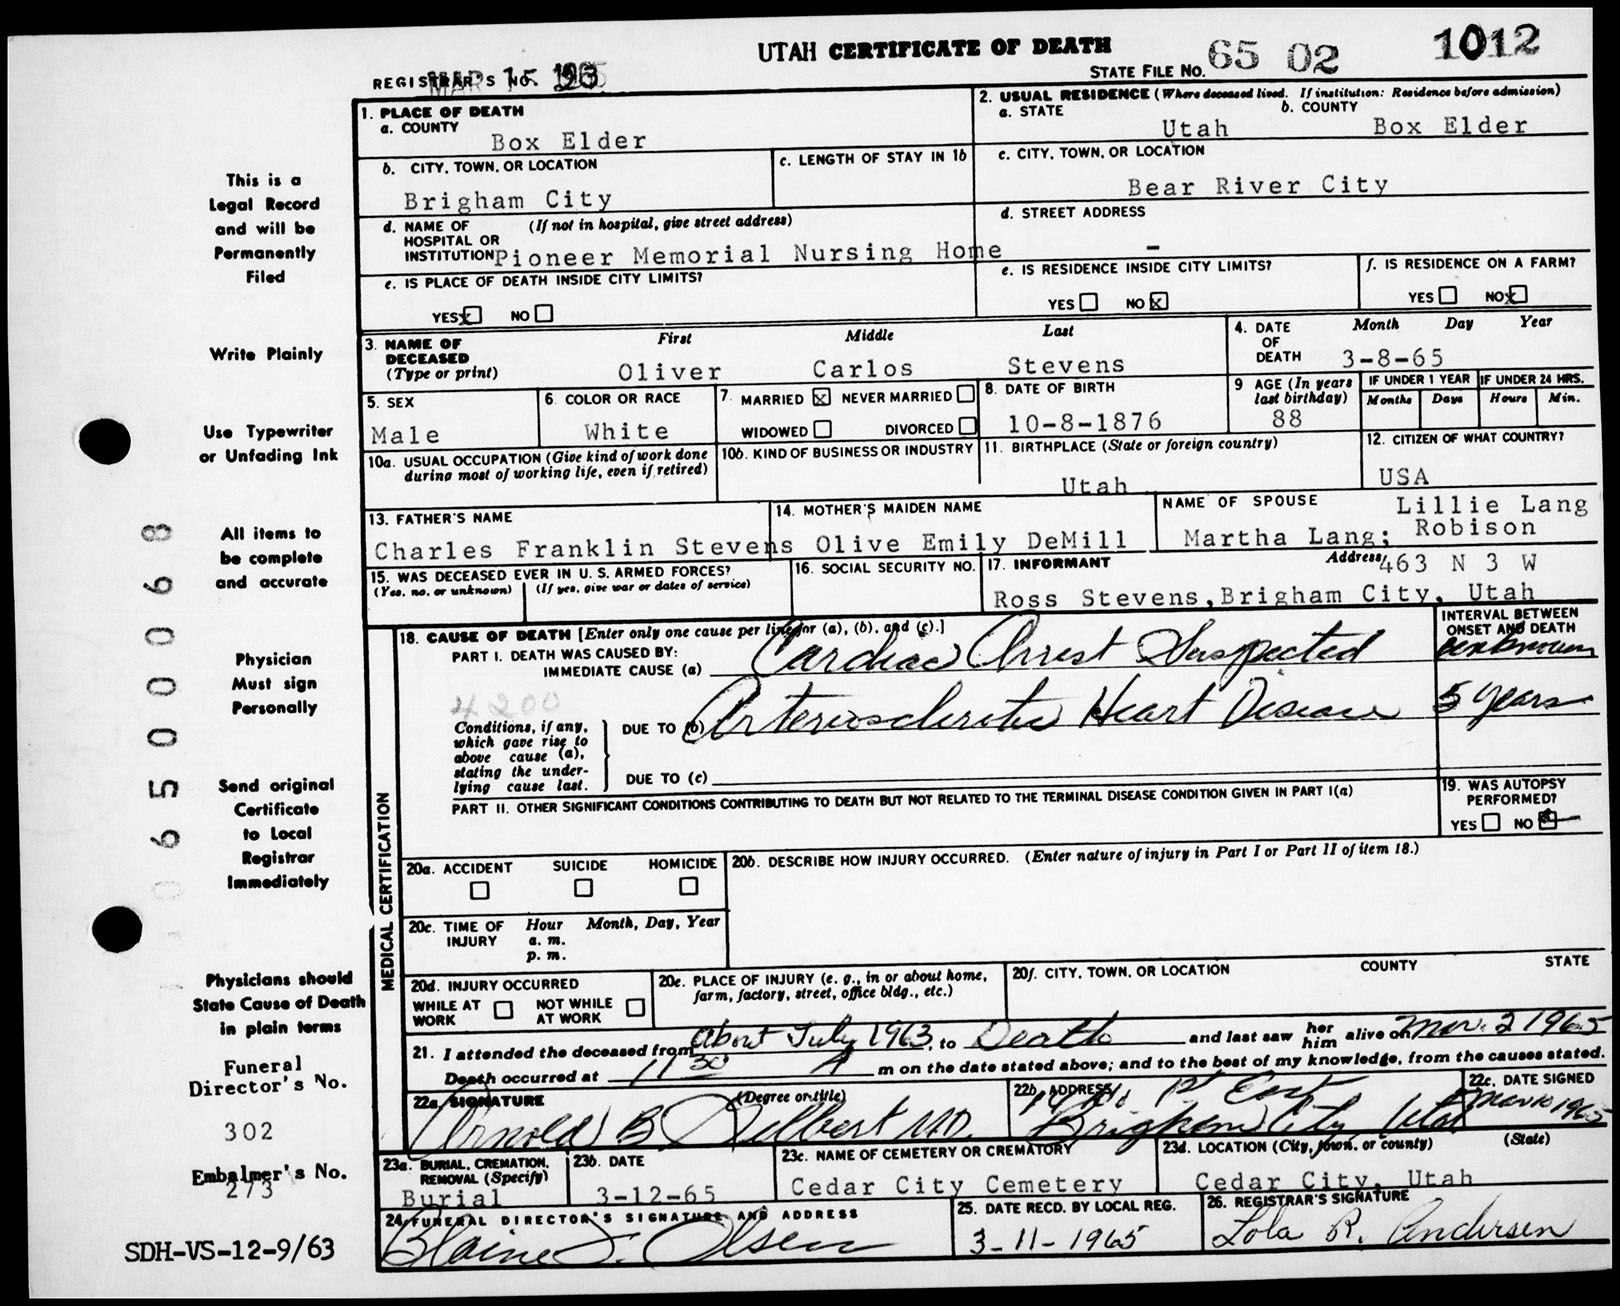 UTAH CERTIFICATE OF DEATH
STATE FILE NO. 65 02 1012
REGISTRAR'S NO. 93
MAR 15
1. PLACE OF DEATH
a. COUNTY
Box Elder
2. USUAL RESIDENCE (Where deceased lived. If institution: Residence before admission)
a. STATE b. COUNTY
Utah Box Elder
b. CITY, TOWN, OR LOCATION
Brigham City
c. LENGTH OF STAY IN 1b
c. CITY, TOWN, OR LOCATION
Bear River City
d. NAME OF HOSPITAL OR INSTITUTION (If not in hospital, give street address)
Pioneer Memorial Nursing Home
d. STREET ADDRESS
-
e. IS PLACE OF DEATH INSIDE CITY LIMITS?
YES x NO
e. IS RESIDENCE INSIDE CITY LIMITS?
YES NO x
f. IS RESIDENCE ON A FARM?
YES NO x
3. NAME OF DECEASED (Type or print)
First Middle Last
Oliver Carlos Stevens
4. DATE OF DEATH
Month Day Year
3-8-65
5. SEX
Male
6. COLOR OR RACE
White
7. MARRIED x NEVER MARRIED
WIDOWED DIVORCED
8. DATE OF BIRTH
10-8-1876
9 AGE (In years last birthday)
88
IF UNDER 1 YEAR IF UNDER 24 HRS.
Months Days Hours Min.
10a. USUAL OCCUPATION (Give kind of work done during most of working life, even if retired)
10b. KIND OF BUSINESS OR INDUSTRY
11. BIRTHPLACE (State or foreign country)
Utah
12. CITIZEN OF WHAT COUNTRY?
USA
13. FATHER'S NAME
Charles Franklin Stevens
14. MOTHER'S MAIDEN NAME
Olive Emily DeMill
NAME OF SPOUSE
Lillie Lang
Martha Lang; Robison
15. WAS DECEASED EVER IN U. S. ARMED FORCES?
(Yes, no, or unknown) (If yes, give war or dates of service)
16. SOCIAL SECURITY NO.
17. INFORMANT Address
463 N 3 W
Ross Stevens, Brigham City, Utah
MEDICAL CERTIFICATION
18. CAUSE OF DEATH [Enter only one cause per line for (a), (b), and (c).]
INTERVAL BETWEEN ONSET AND DEATH
PART I. DEATH WAS CAUSED BY:
IMMEDIATE CAUSE (a) Cardiac Arrest Suspected unknown
4200
Conditions, if any, which gave rise to above cause (a), stating the underlying cause last.
DUE TO (b) Arteriosclerotic Heart Disease 5 years
DUE TO (c)
PART II. OTHER SIGNIFICANT CONDITIONS CONTRIBUTING TO DEATH BUT NOT RELATED TO THE TERMINAL DISEASE CONDITION GIVEN IN PART I(a)
19. WAS AUTOPSY PERFORMED?
YES NO x
20a. ACCIDENT SUICIDE HOMICIDE
20b. DESCRIBE HOW INJURY OCCURRED. (Enter nature of injury in Part I or Part II of item 18.)
20c. TIME OF INJURY Hour Month, Day, Year
a. m.
p. m.
20d. INJURY OCCURRED
WHILE AT WORK NOT WHILE AT WORK
20e. PLACE OF INJURY (e. g., in or about home, farm, factory, street, office bldg., etc.)
20f. CITY, TOWN, OR LOCATION COUNTY STATE
21. I attended the deceased from About July 1963, to Death and last saw her him alive on Mar. 2 1965
Death occurred at 11 50 A m on the date stated above; and to the best of my knowledge, from the causes stated.
22a. SIGNATURE (Degree or title)
Arnold B Gilbert M.D.
22b. ADDRESS
1st East
Brigham City Utah
22c. DATE SIGNED
Mar 10 1965
23a. BURIAL, CREMATION, REMOVAL (Specify)
Burial
23b. DATE
3-12-65
23c. NAME OF CEMETERY OR CREMATORY
Cedar City Cemetery
23d. LOCATION (City, town, or county) (State)
Cedar City, Utah
24. FUNERAL DIRECTOR'S SIGNATURE AND ADDRESS
Blaine J. Olsen
25. DATE RECD. BY LOCAL REG.
3-11-1965
26. REGISTRAR'S SIGNATURE
Lola R. Andersen
This is a
Legal Record
and will be
Permanently
Filed
Write Plainly
Use Typewriter
or Unfading Ink
All items to
be complete
and accurate
Physician
Must sign
Personally
Send original
Certificate
to Local
Registrar
Immediately
Physicians should
State Cause of Death
in plain terms
Funeral
Director's No.
302
Embalmer's No.
273
SDH-VS-12-9/63
06500068